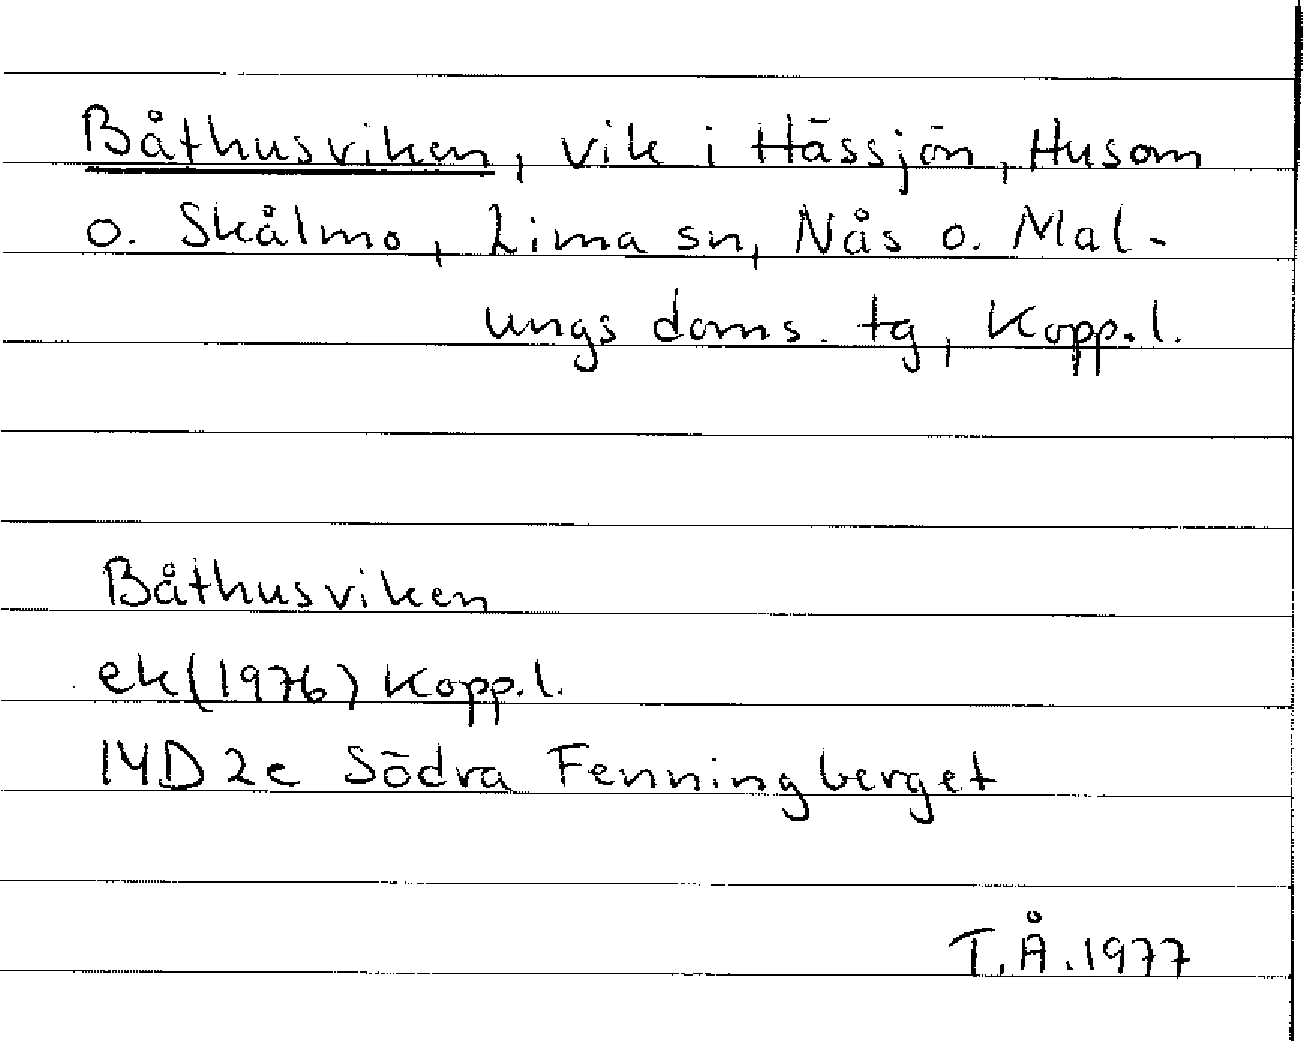 Båthusviken, vik i Hässjön, Husom
o. Skålmo, Lima sn, Nås o. Mal-
ungs doms. tg, Kopp.l.
Båthusviken
ek(1976) Kopp.l.
14D 2c Södra Fenningberget
T.Å.1977